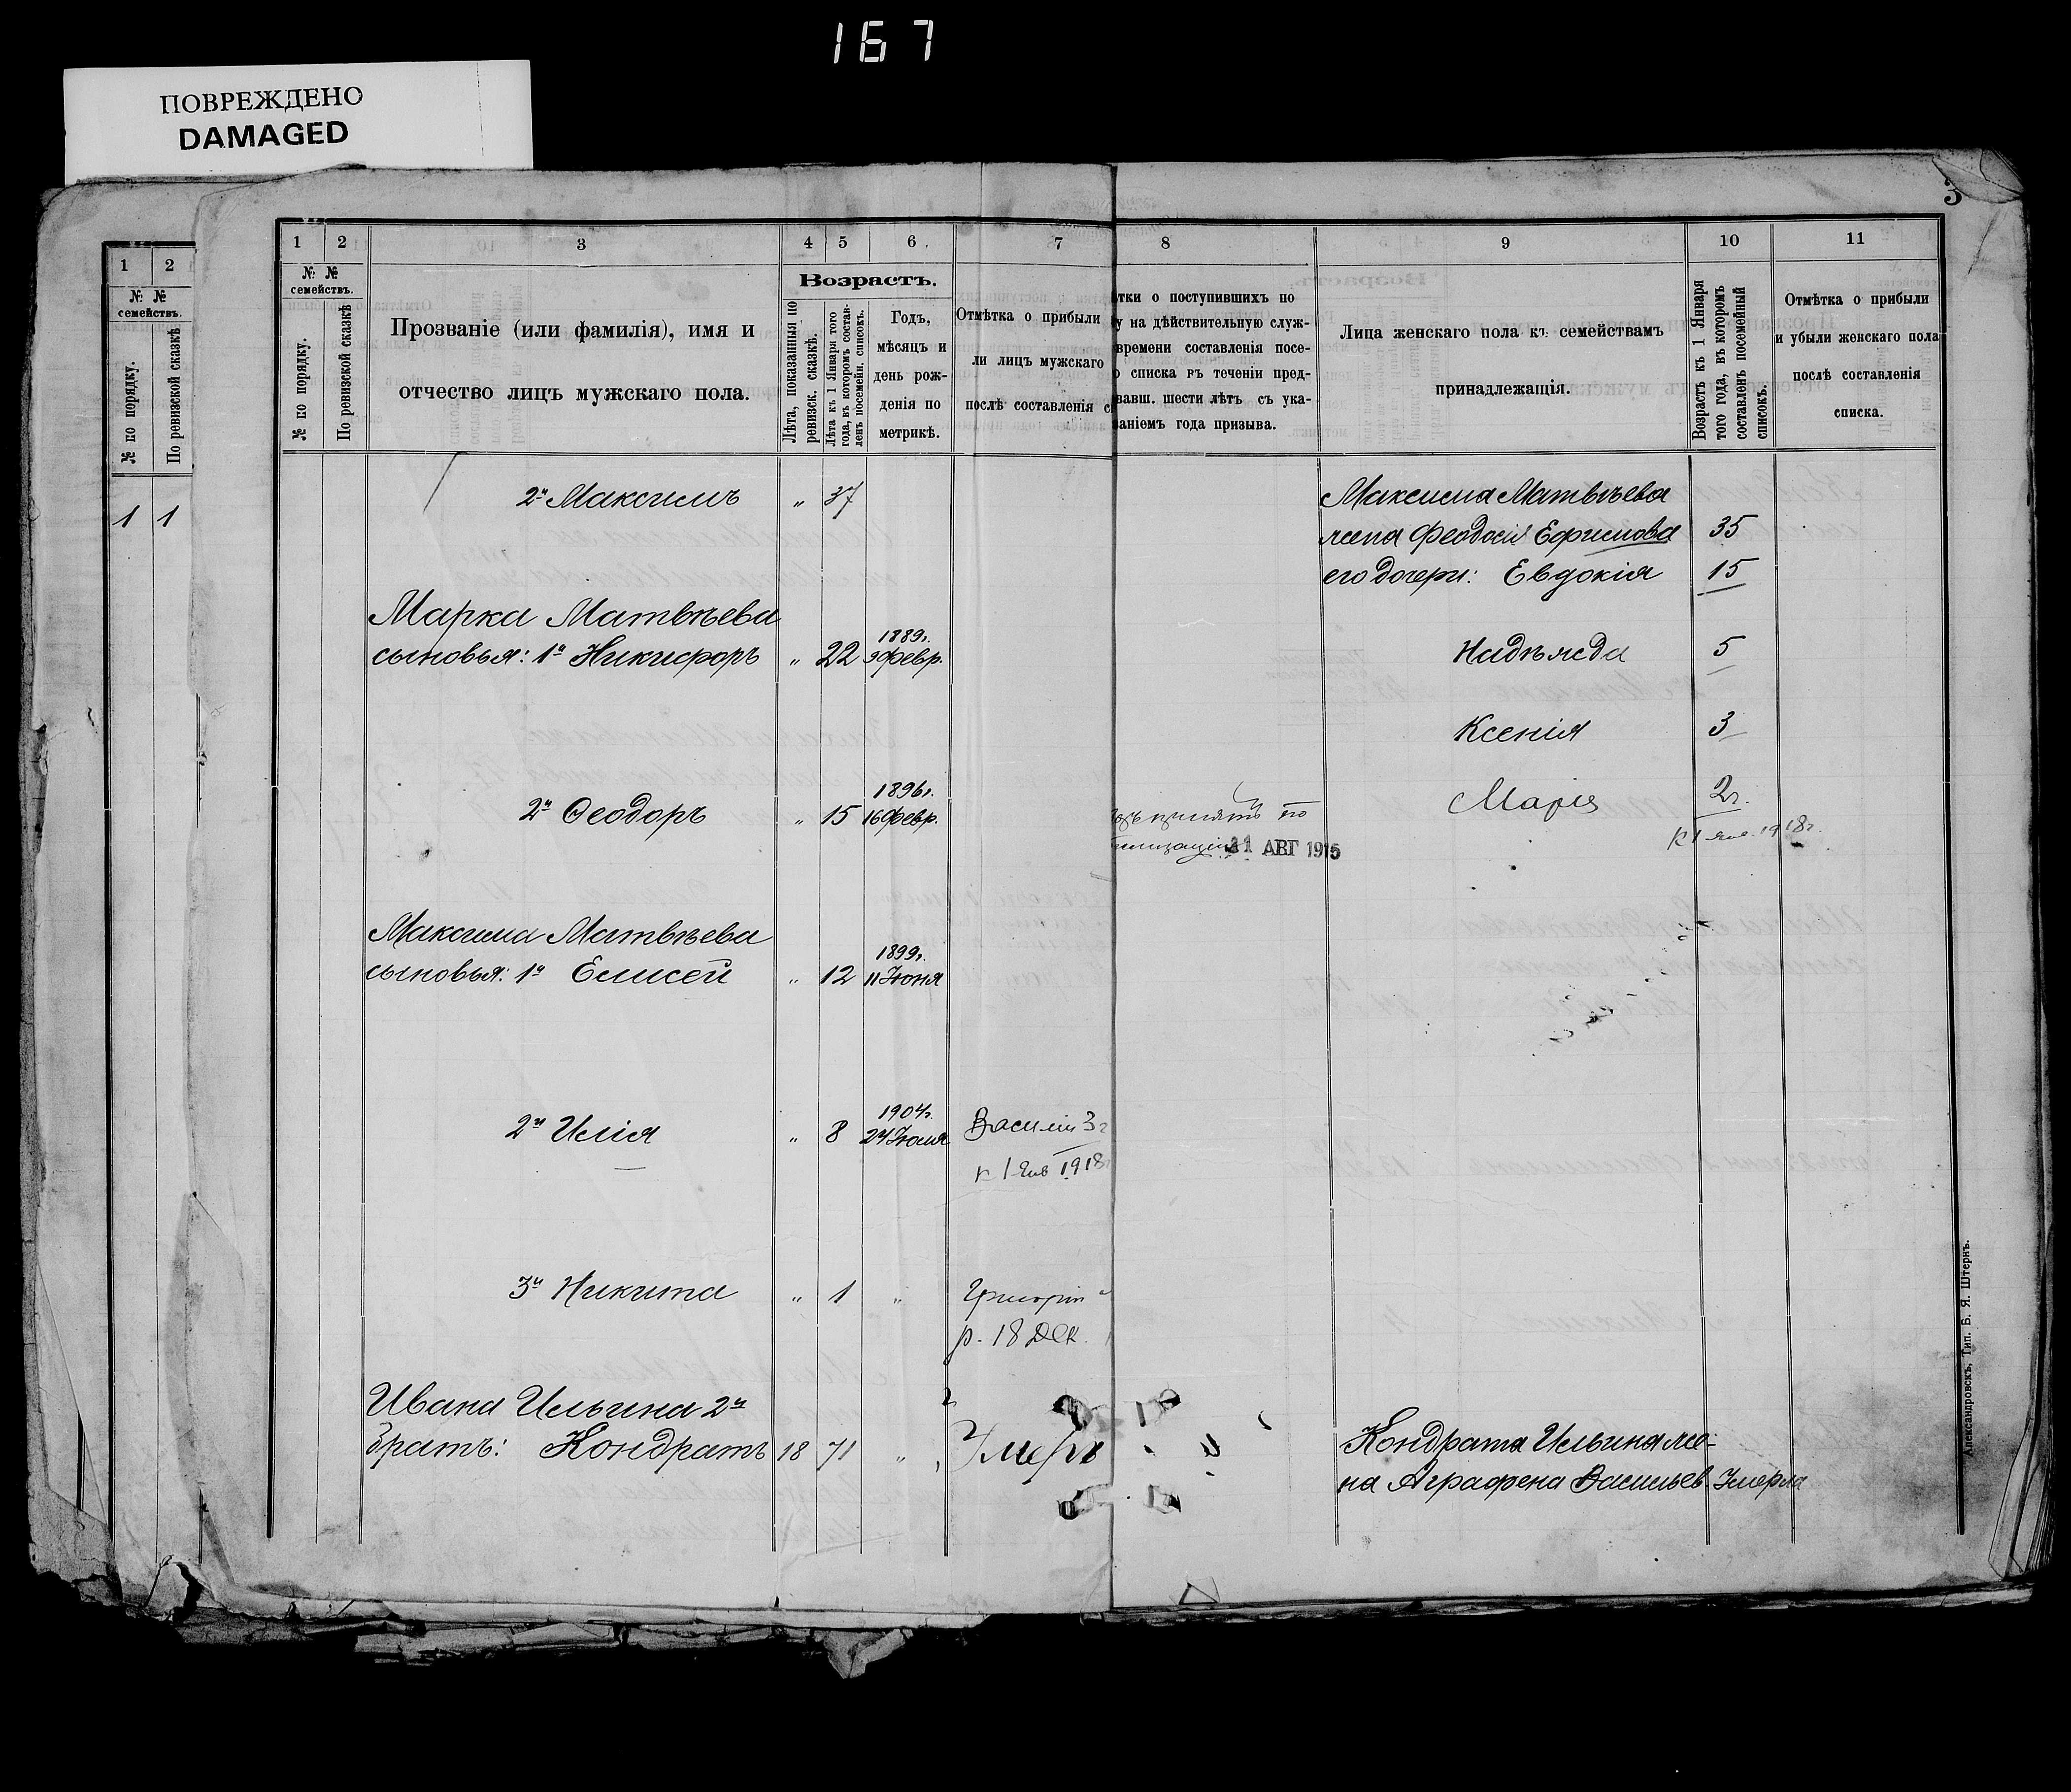 167
ПОВРЕЖДЕНО
DAMAGED
3
1 2
№ №
семействъ.
№ по порядку.
По ревизской сказкѣ
1 1
1 2 3 4 5 6 7 8 9 10 11
№ №
семействъ.
№ по порядку.
По ревизской сказкѣ
Прозваніе (или фамилія), имя и
отчество лицъ мужскаго пола.
Возрастъ.
Лѣта, показанныя по
ревизск. сказкѣ.
Лѣта къ 1 Января того
года, въ которомъ состав-
ленъ посемейн. списокъ.
Годъ,
мѣсяцъ и
день рож-
денія по
метрикѣ.
Отмѣтка о прибыли
ли лицъ мужскаго
послѣ составленія с
тки о поступившихъ по
у на дѣйствительную служ-
времени составленія посе-
о списка въ теченіи пред-
вавш. шести лѣтъ съ ука-
аніемъ года призыва.
Лица женскаго пола къ семействамъ
принадлежащія.
Возрастъ къ 1 Января
того года, въ которомъ
составленъ посемейный
списокъ.
Отмѣтка о прибыли
и убыли женскаго пола
послѣ составленія
списка.
2й Максимъ " 37
Максима Матвѣева
жена Феодосія Ефимова 35
его дочери: Евдокія 15
Марка Матвѣева
сыновья: 1й Никифоръ " 22 1889г. 9 Февр.
Надежда 5
Ксенія 3
2й Ѳеодоръ " 15 1896г. 16 Февр.
принятъ по
31 АВГ 1915
Марія 2г.
к 1 янв. 1918г.
Максима Матвѣева
сыновья: 1й Елисей " 12 1899г. 11 Іюня
2й Илія " 8 1904г. 24 Іюля
Василій 3г
к 1 Янв 1918
3й Никита " 1 "
Григорій
р. 18 Дек.
Ивана Ильина 2й
братъ: Кондратъ 18 71 " Умеръ
Кондрата Ильина же-
на Аграфена Васильев. Умерла
Александровскъ, Тип. Б. Я. Штернъ.